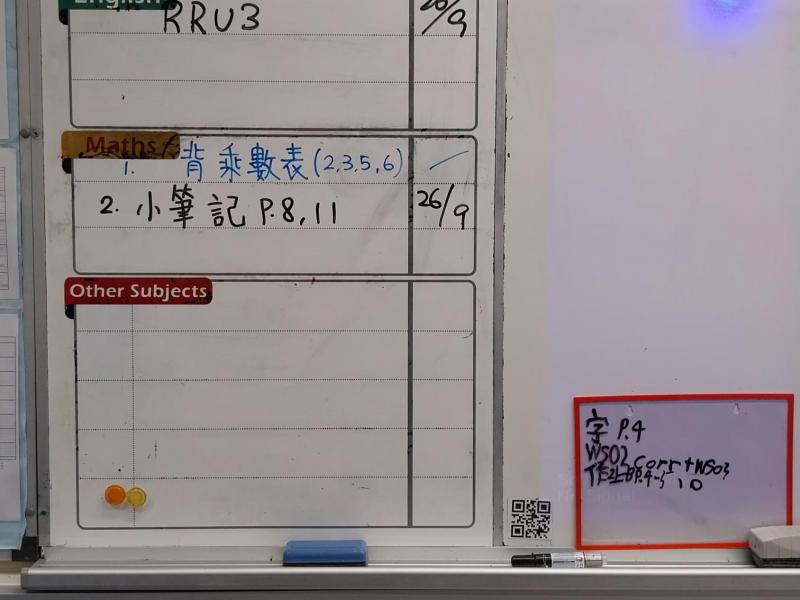 English
RRU3 26/9
Maths
1. 背乘數表(2,3,5,6)
2. 小筆記 P.8,11 26/9
Other Subjects
字 P.4
WS02 Corr+WS03
P.4-5